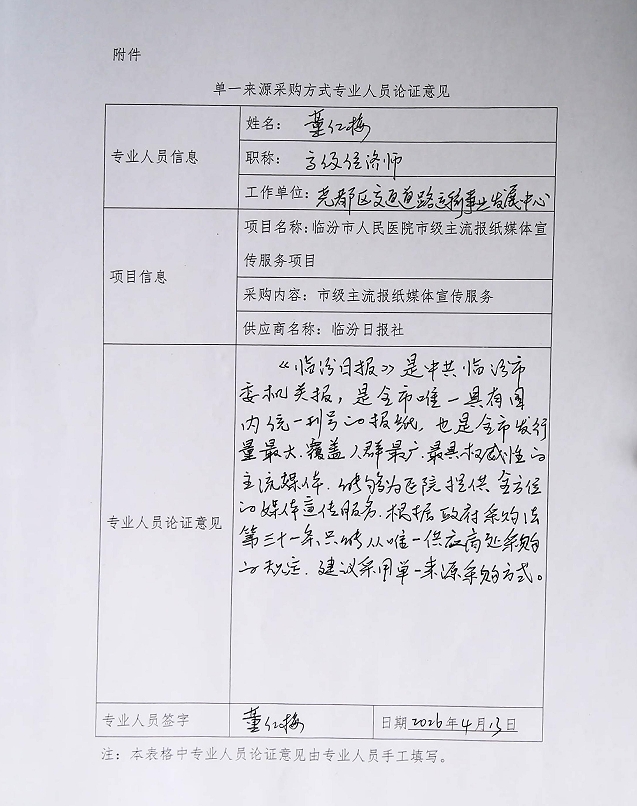 附件
单一来源采购方式专业人员论证意见
专业人员信息
姓名：董仁梅
职称：高级经济师
工作单位：尧都区交通道路运输事业发展中心
项目信息
项目名称：临汾市人民医院市级主流报纸媒体宣
传服务项目
采购内容：市级主流报纸媒体宣传服务
供应商名称：临汾日报社
专业人员论证意见
《临汾日报》是中共临汾市
委机关报，是全市唯一具有国
内统一刊号的报纸，也是全市发行
量最大、覆盖人群最广、最具权威性的
主流媒体，能够为医院提供全方位
的媒体宣传服务。根据政府采购法
第三十一条只能从唯一供应商处采购
的规定，建议采用单一来源采购方式。
专业人员签字
董仁梅
日期2026年4月13日
注：本表格中专业人员论证意见由专业人员手工填写。